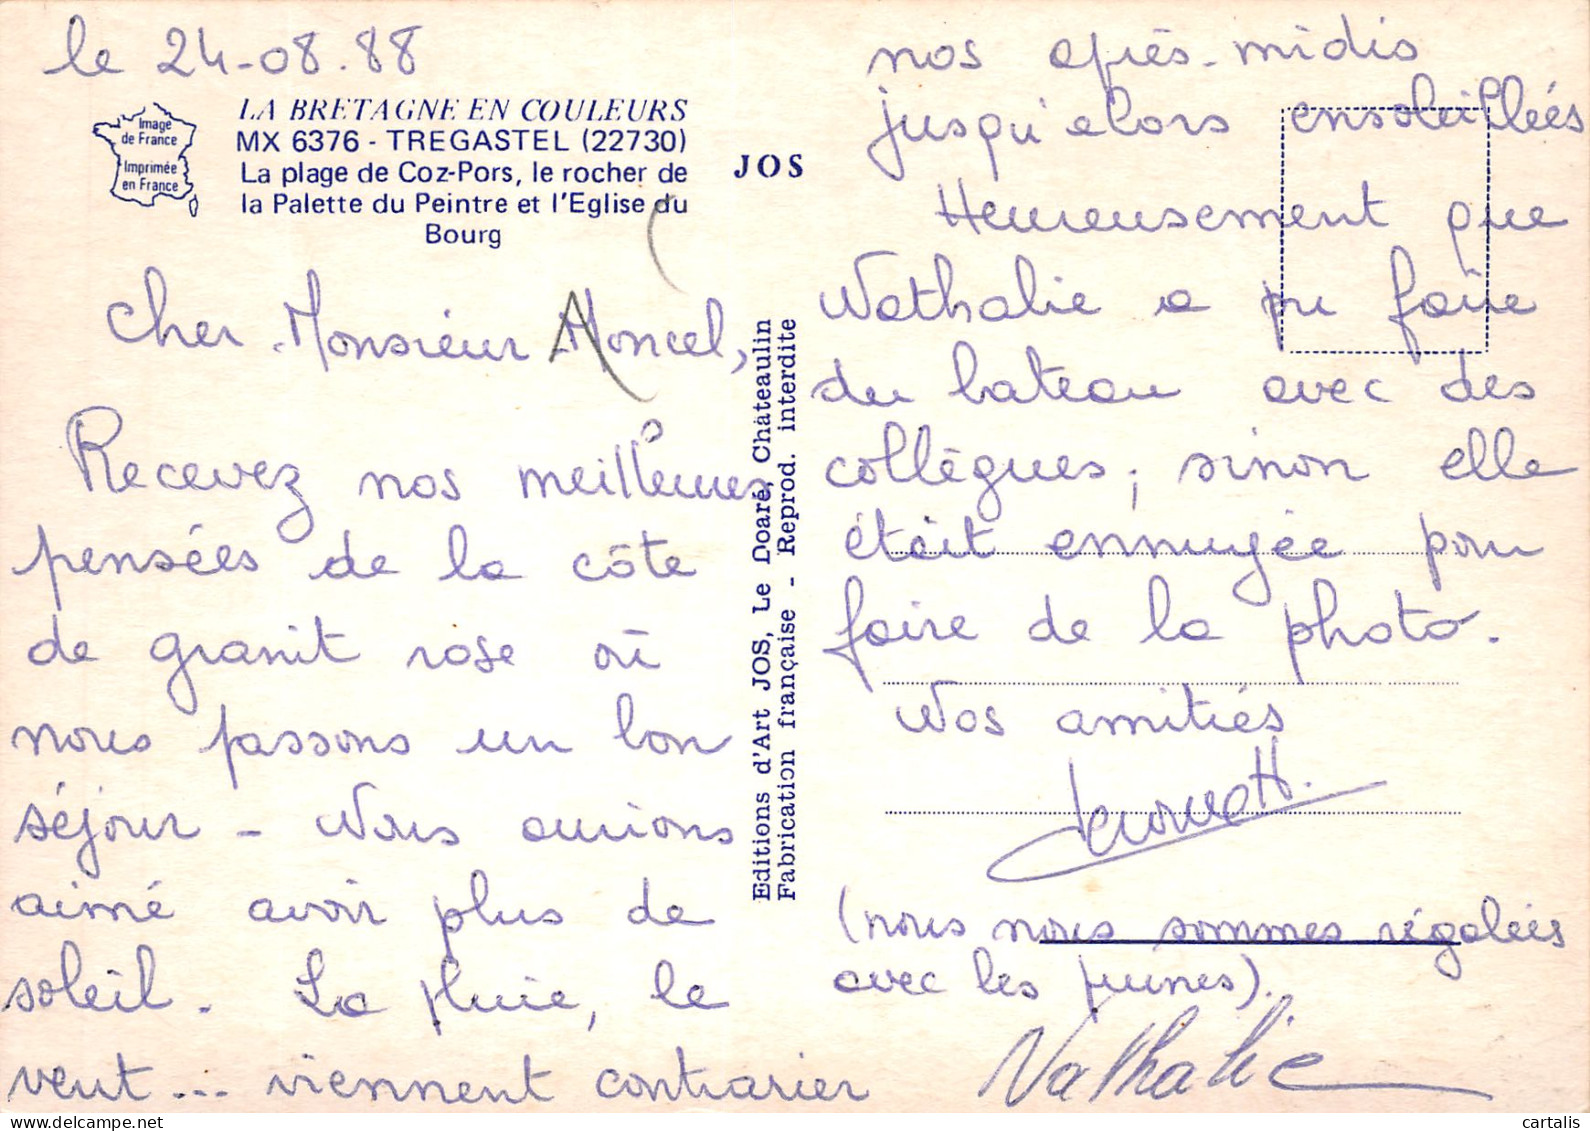 le 24-08.88
Image
de France
Imprimée
en France
LA BRETAGNE EN COULEURS
MX 6376 - TREGASTEL (22730)
La plage de Coz-Pors, le rocher de
la Palette du Peintre et l'Eglise du
Bourg
JOS
Cher Monsieur Moncel,
Recevez nos meilleures
pensées de la côte
de granit rose où
nous passons un bon
séjour - Nous aurions
aimé avoir plus de
soleil. La pluie, le
vent... viennent contrarier
Editions d'Art JOS, Le Doaré, Châteaulin
Fabrication française - Reprod. interdite
nos après-midis
jusqu'alors ensoleillées
Heureusement que
Nathalie a pu faire
du bateau avec des
collègues; sinon elle
était ennuyée pour
faire de la photo.
Nos amitiés
(nous nous sommes régalées
avec les prunes).
Nathalie
cartalis